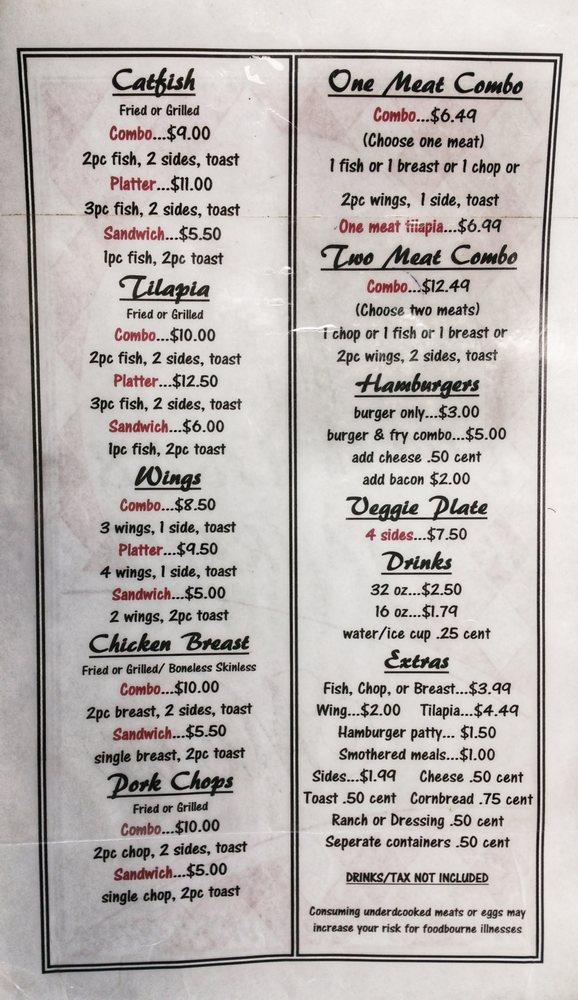 Catfish
Fried or Grilled
Combo...$9.00
2pc fish, 2 sides, toast
Platter...$11.00
3pc fish, 2 sides, toast
Sandwich...$5.50
1pc fish, 2pc toast
Tilapia
Fried or Grilled
Combo...$10.00
2pc fish, 2 sides, toast
Platter...$12.50
3pc fish, 2 sides, toast
Sandwich...$6.00
1pc fish, 2pc toast
Wings
Combo...$8.50
3 wings, 1 side, toast
Platter...$9.50
4 wings, 1 side, toast
Sandwich...$5.00
2 wings, 2pc toast
Chicken Breast
Fried or Grilled/ Boneless Skinless
Combo...$10.00
2pc breast, 2 sides, toast
Sandwich...$5.50
single breast, 2pc toast
Pork Chops
Fried or Grilled
Combo...$10.00
2pc chop, 2 sides, toast
Sandwich...$5.00
single chop, 2pc toast
One Meat Combo
Combo...$6.49
(Choose one meat)
1 fish or 1 breast or 1 chop or
2pc wings, 1 side, toast
One meat tilapia...$6.99
Two Meat Combo
Combo...$12.49
(Choose two meats)
1 chop or 1 fish or 1 breast or
2pc wings, 2 sides, toast
Hamburgers
burger only...$3.00
burger & fry combo...$5.00
add cheese .50 cent
add bacon $2.00
Veggie Plate
4 sides...$7.50
Drinks
32 oz...$2.50
16 oz...$1.79
water/ice cup .25 cent
Extras
Fish, Chop, or Breast...$3.99
Wing...$2.00 Tilapia...$4.49
Hamburger patty... $1.50
Smothered meals...$1.00
Sides...$1.99 Cheese .50 cent
Toast .50 cent Cornbread .75 cent
Ranch or Dressing .50 cent
Seperate containers .50 cent
DRINKS/TAX NOT INCLUDED
Consuming underdcooked meats or eggs may
increase your risk for foodbourne illnesses